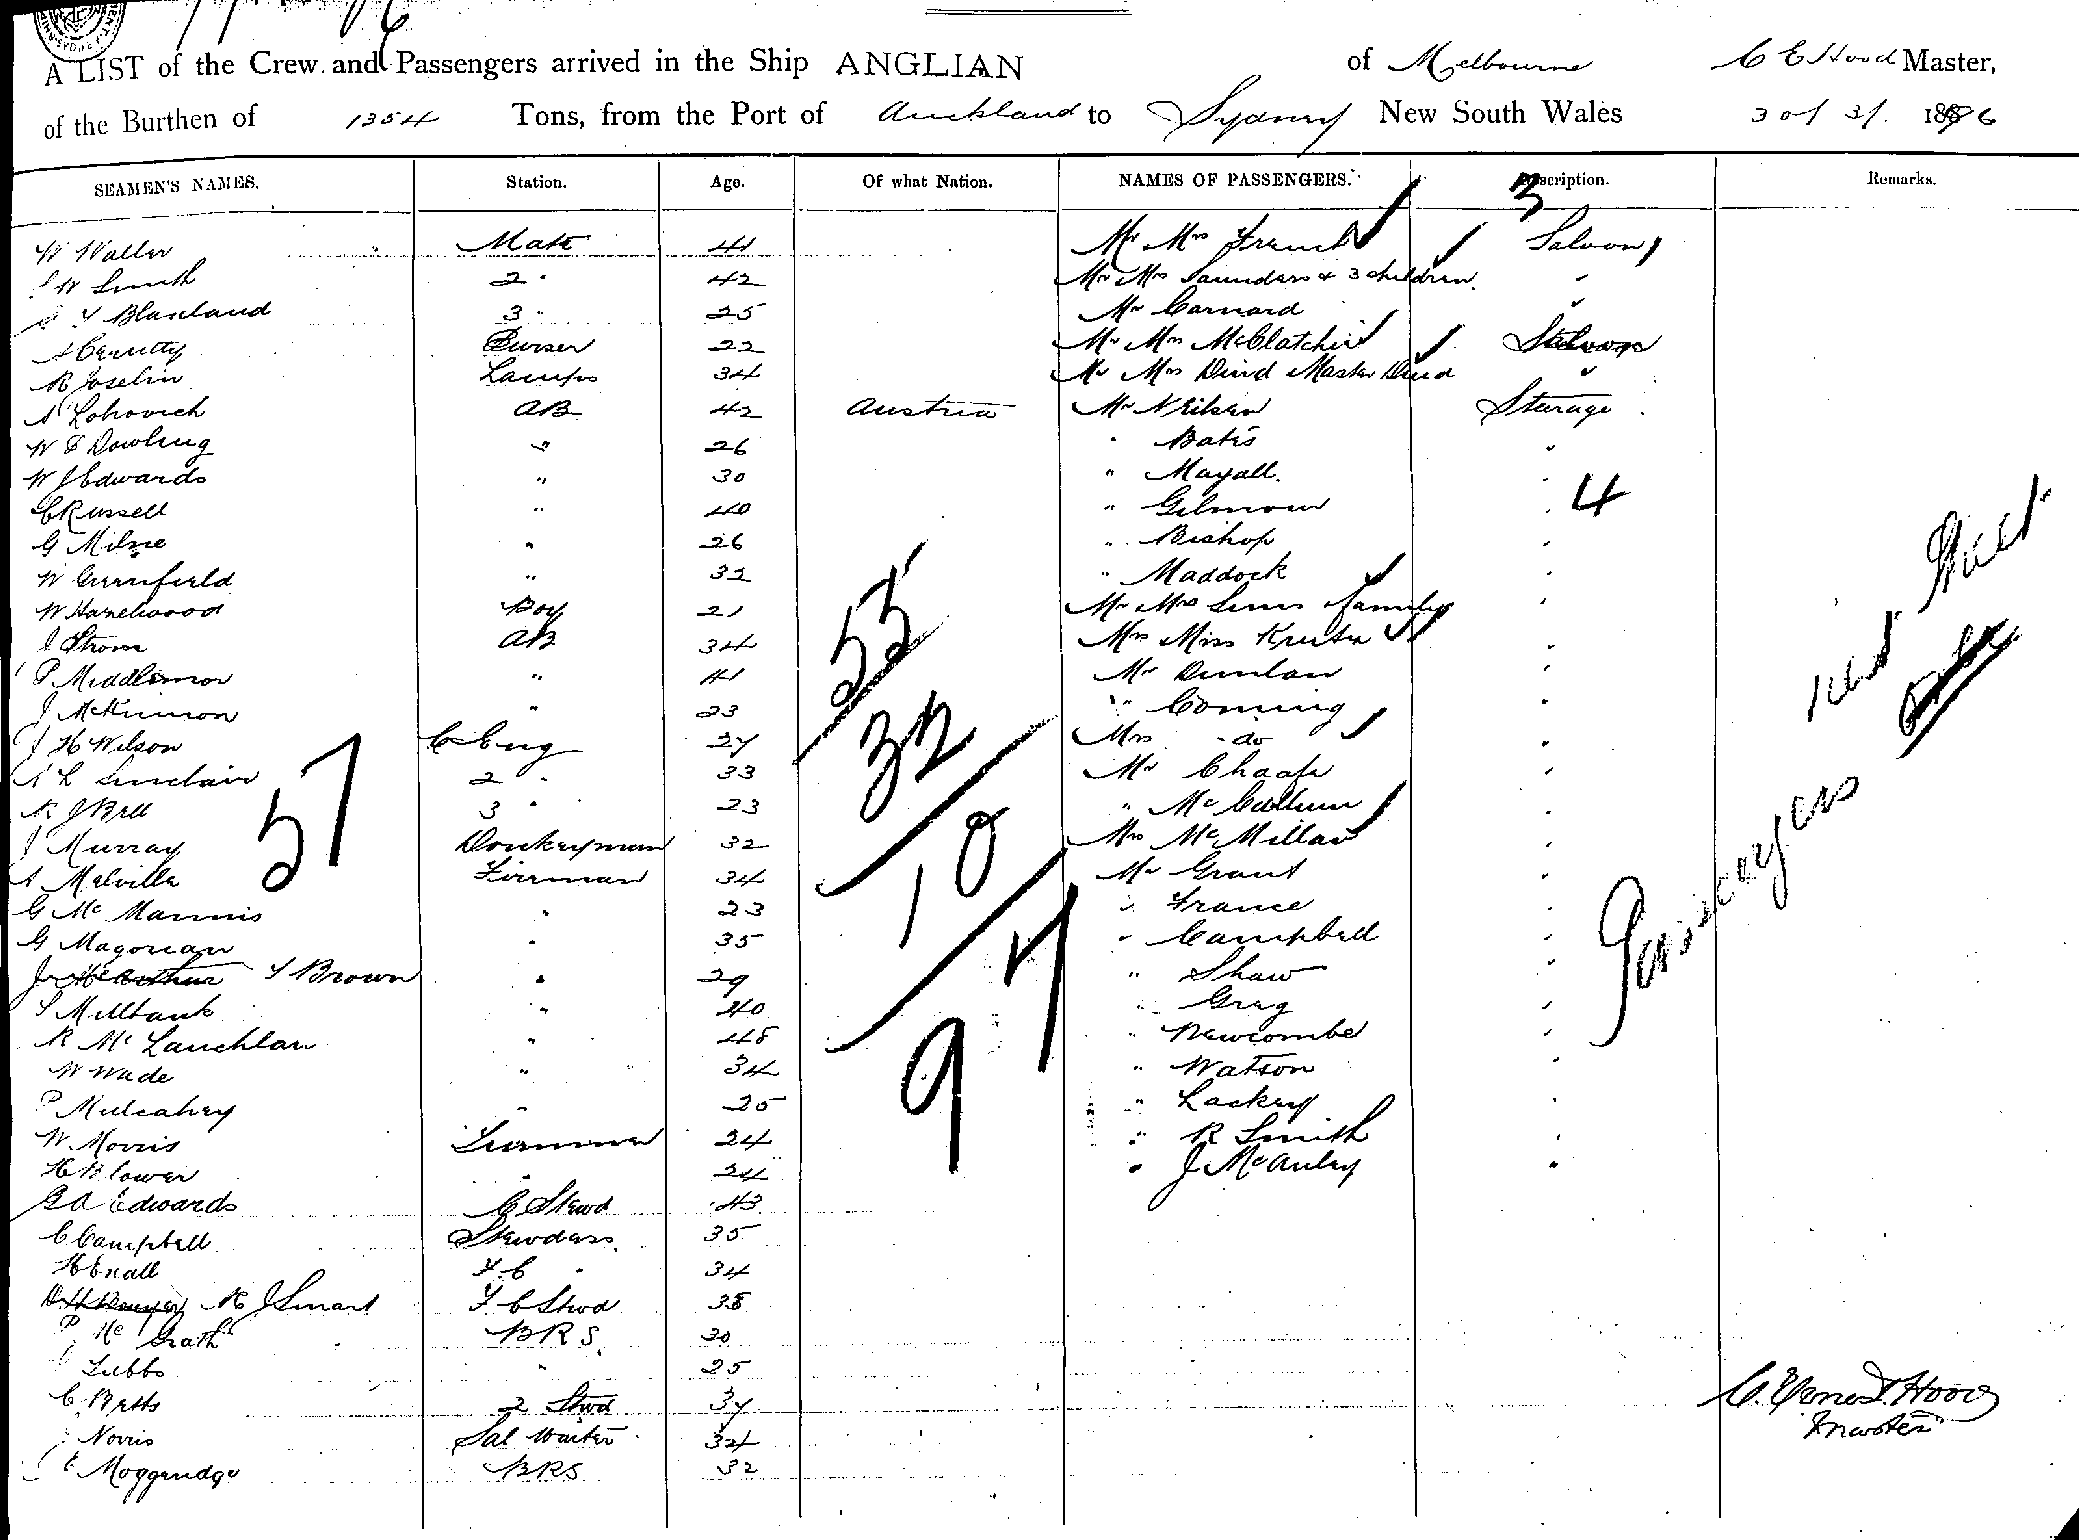 A LIST of the Crew and Passengers arrived in the Ship ANGLIAN of Melbourne C E Hood Master,
of the Burthen of 1354 Tons, from the Port of Auckland to Sydney New South Wales 3 of 3/. 1896
SEAMEN'S NAMES. Station. Age. Of what Nation. NAMES OF PASSENGERS. Description. Remarks.
3
W Waller Mate 41 Mr Mrs French Saloon
W Smith 2 " 42 Mr Mrs Saunders & 3 children "
Y Blaxland 3 " 25 Mr Carnard "
Purser 22 Mr Mrs McClatchie Saloon
R Joselin Lamps 34 Mr Mrs Dind Master Dind "
A Lohovich AB 42 Austria Mr Neilsen Sterage
W E Dowling " 26 " Bates "
W J Edwards " 30 " Mayall. "
C Russell " 40 " Gilmour " 4
G Milne " 26 " Bishop "
W Greenfield " 32 " Maddock "
W Hazelwood Boy 21 Mr Mrs family "
J Strom AB 34 Mrs Miss "
P Middlemor " 41 Mr Dunlan "
J McKinnon " 23 " Coming "
J H Wilson C Eng 27 Mrs do "
A L Sinclair 2 " 33 Mr Chaafe "
R J Bell 3 " 23 " McCallum "
J Murray Donkeyman 32 Mrs McMillan "
A Melville Fireman 34 Mr Grant "
G McMannis " 23 " France "
G Magorian " 35 " Campbell "
J McArthur Y Brown " 29 " Shaw "
S Millbank " 40 " Greg "
R McLauchlan " 48 " Newcombe "
W Wade " 34 " Watson "
P Mulcahey " 25 " Lackey "
W Morris Trimmer 24 " R Smith "
H Blower " 24 " J McAuley "
G A Edwards C Stewd 43
C Campbell Stewdess 35
H Enall F.C " 34
R J Smart F C Stwd 38
P McGrath BRS. 30
Tubbs " 25
C Betts 2 Stwd 37
Norris Sal Waiter 34
Moggeridge BRS 32
57
53
32
10
97
Passengers
C. Ernest Hood
Master